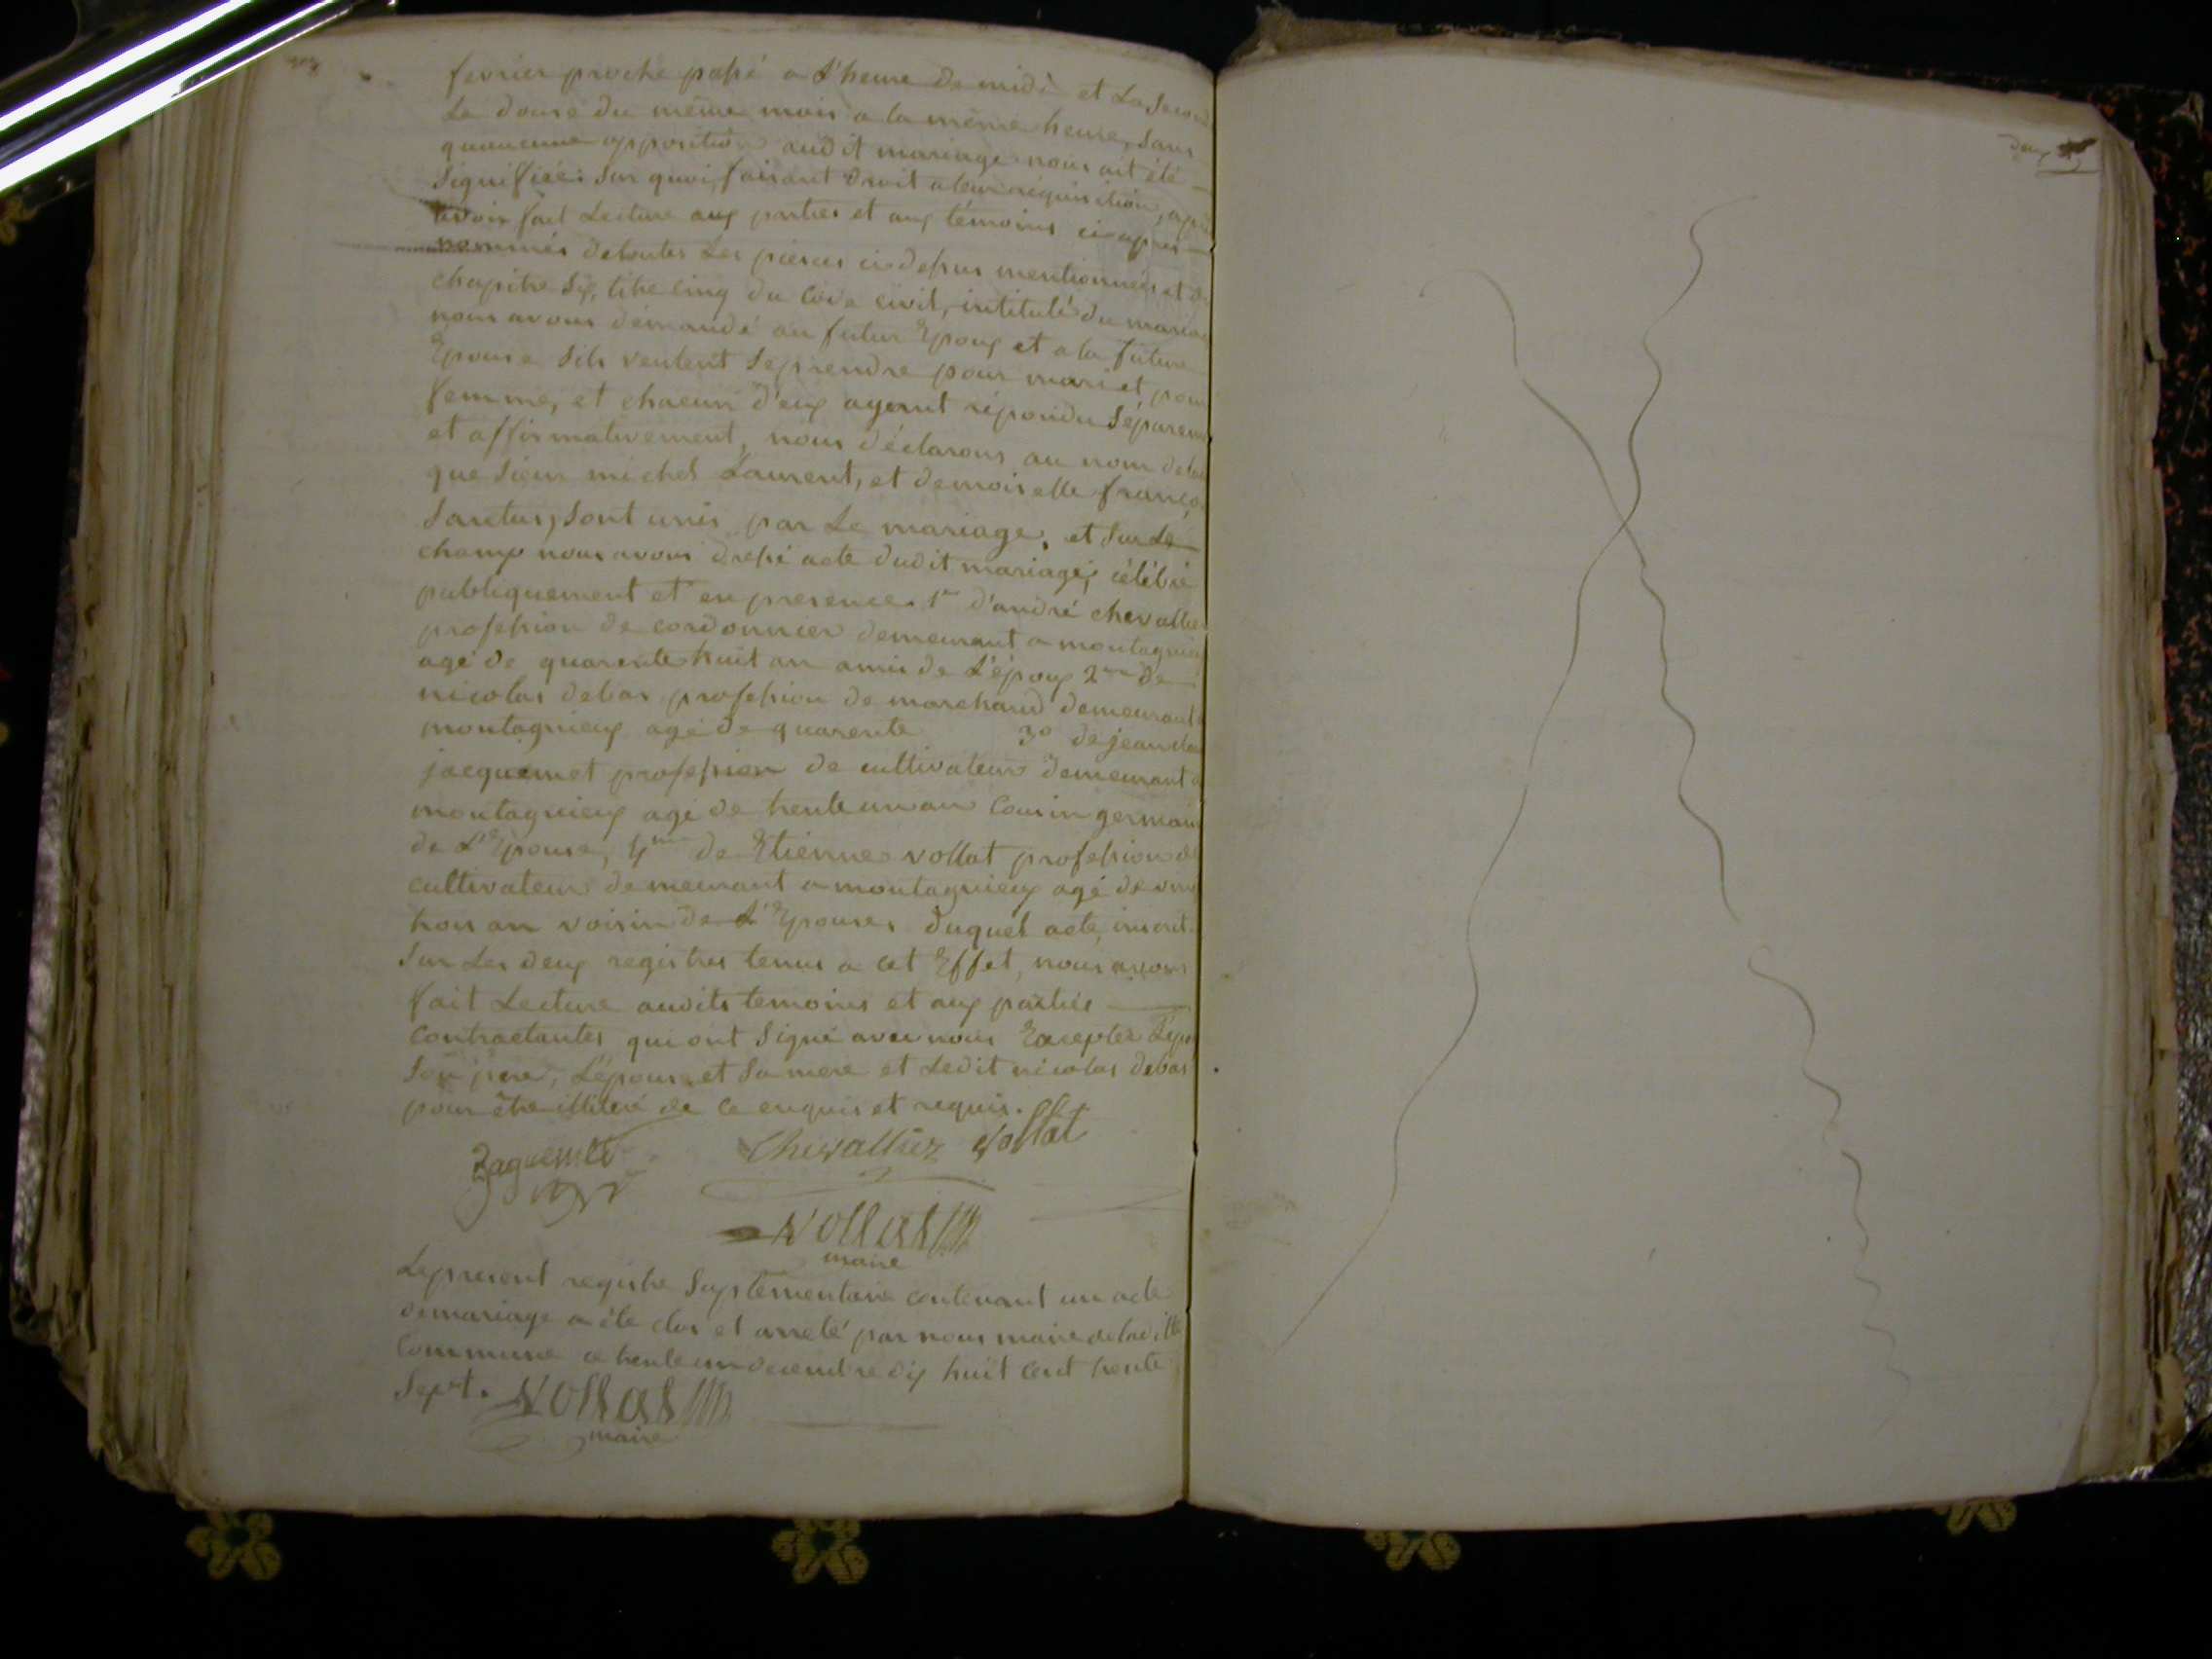 fevrier proche passé a l'heure de midi et la second
le douse du même mois a la même heure, sans
qu'aucune opposition audit mariage nous ait été
signifiée: sur quoi, faisant droit a leur réquisition, apres
avoir fait lecture aux parties et aux témoins ci apres
nommés de toutes les pieces ci dessus mentionnées et du
chapitre six, titre cinq du code civil, intitulé du mariage
nous avons demandé au futur Epoux et a la future
Epouse s'ils veulent se prendre pour mari et pour
femme, et chacun d'eux ayant répondu séparem
et affirmativement, nous déclarons au nom de la
que sieur michel Laurent, et demoiselle franço
Sanctus, sont unis par le mariage, et sur le
champ nous avons dressé acte dudit mariage, célébré
publiquement et en presence 1er d'andré chevallier
profession de cordonnier demeurant a montagnieu
agé de quarente huit an amis de l'époux 2me de
nicolas debas profession de marchand demeurant
montagnieux agé de quarente 3o de jean
jacquemet profession de cultivateur demeurant a
montagnieux agé de trente un an cousin germain
de l'Epouse, 4me de Etienne vollat profession de
cultivateur demeurant a montagnieux agé de vin
trois an voisin de l'Epouse. duquel acte, inscrit
sur les deux registres tenus a cet Effet, nous avons
fait lecture audits temoins et aux parties
contractantes qui ont signé avec nous Excepter l'epo
son pere, l'épouse et sa mere et ledit nicolas debas
pour être illiteré de ce enquis et requis.
Jaquemet Chevallier Vollat
Vollat
maire
Le present registre suplementaire contenant un acte
de mariage a été clos et arreté par nous maire de ladite
commune ce trente un decembre dix huit cent trente
sept. Vollat
maire
deux